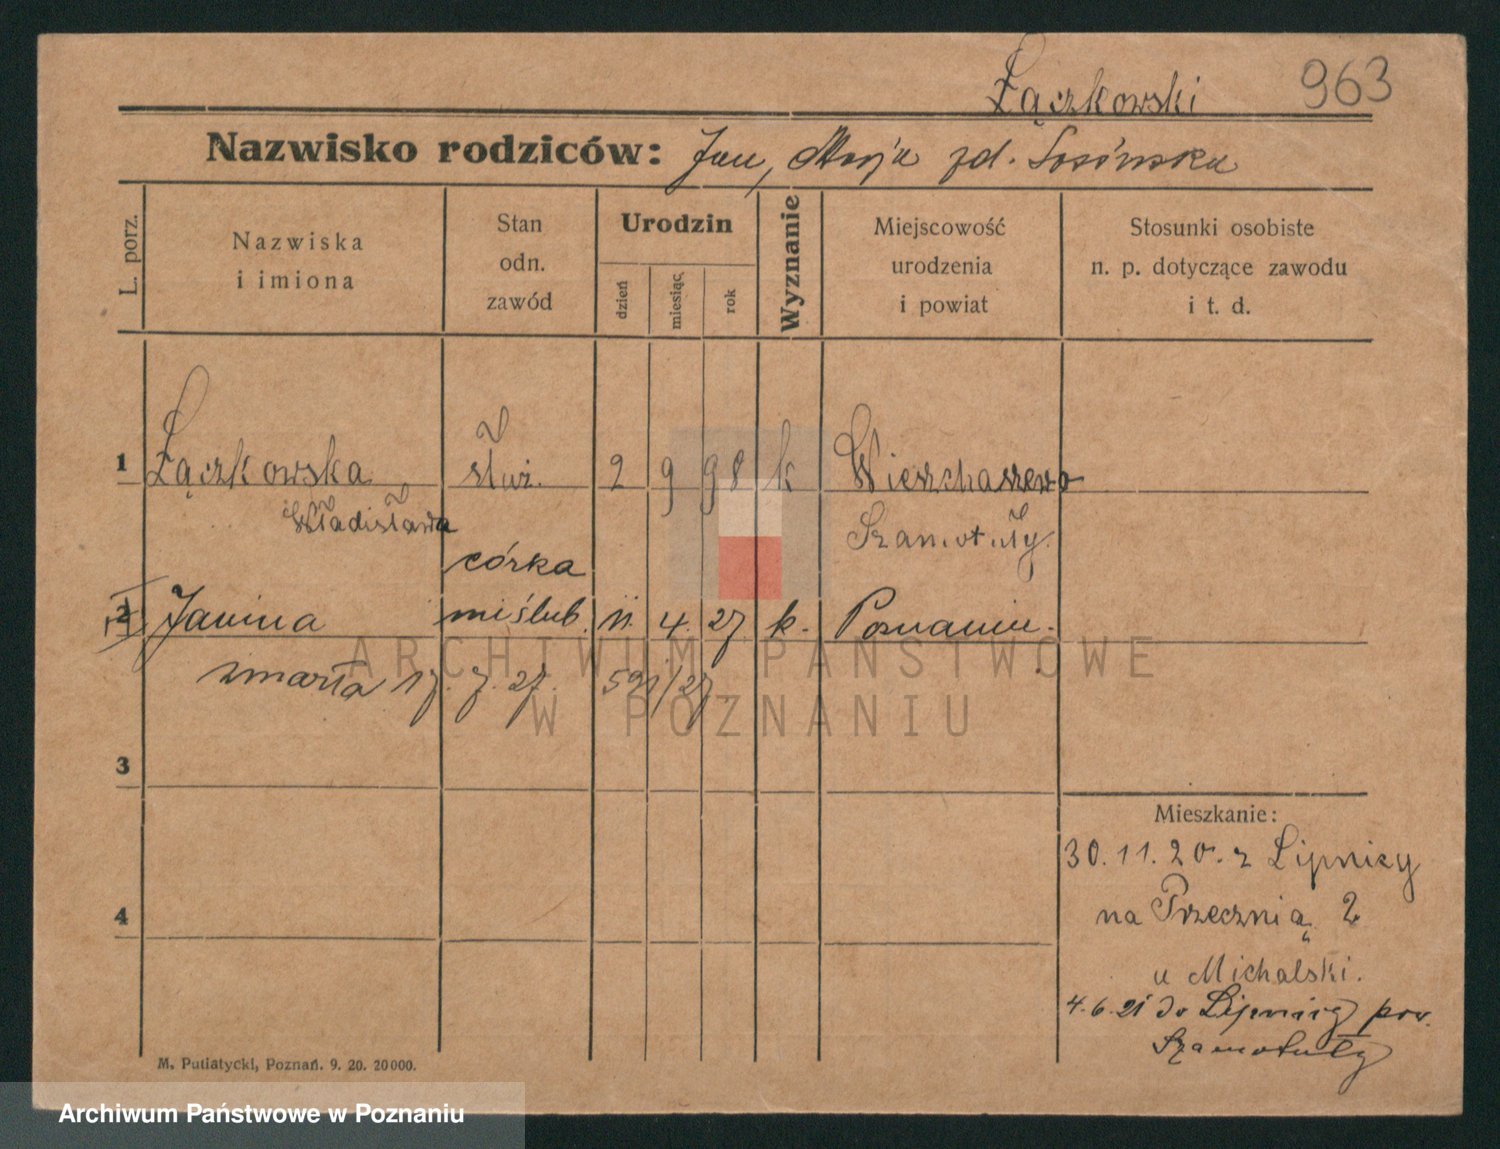 Łączkowski 963
Nazwisko rodziców: Jan, zd. Sosińska
L. porz.
Nazwiska
i imiona
Stan
odn.
zawód
Urodzin
dzień
miesiąc
rok
Wyznanie
Miejscowość
urodzenia
i powiat
Stosunki osobiste
n. p. dotyczące zawodu
i t. d.
1 Łączkowska służ. 2 9 98 k Wierzchaszewo
Władisława Szamotuły.
córka
2 Janina nieślub. 11. 4. 27 k. Poznaniu.
zmarła 17. 7. 27. 591/27.
3
4
Mieszkanie:
30.11.20. z Lipnicy
na Przecznią 2
u Michalski.
4.6.21 do Lipnicy pow.
Szamotuły
M. Putiatycki, Poznań. 9. 20. 20000.
ARCHIWUM PAŃSTWOWE
W POZNANIU
Archiwum Państwowe w Poznaniu